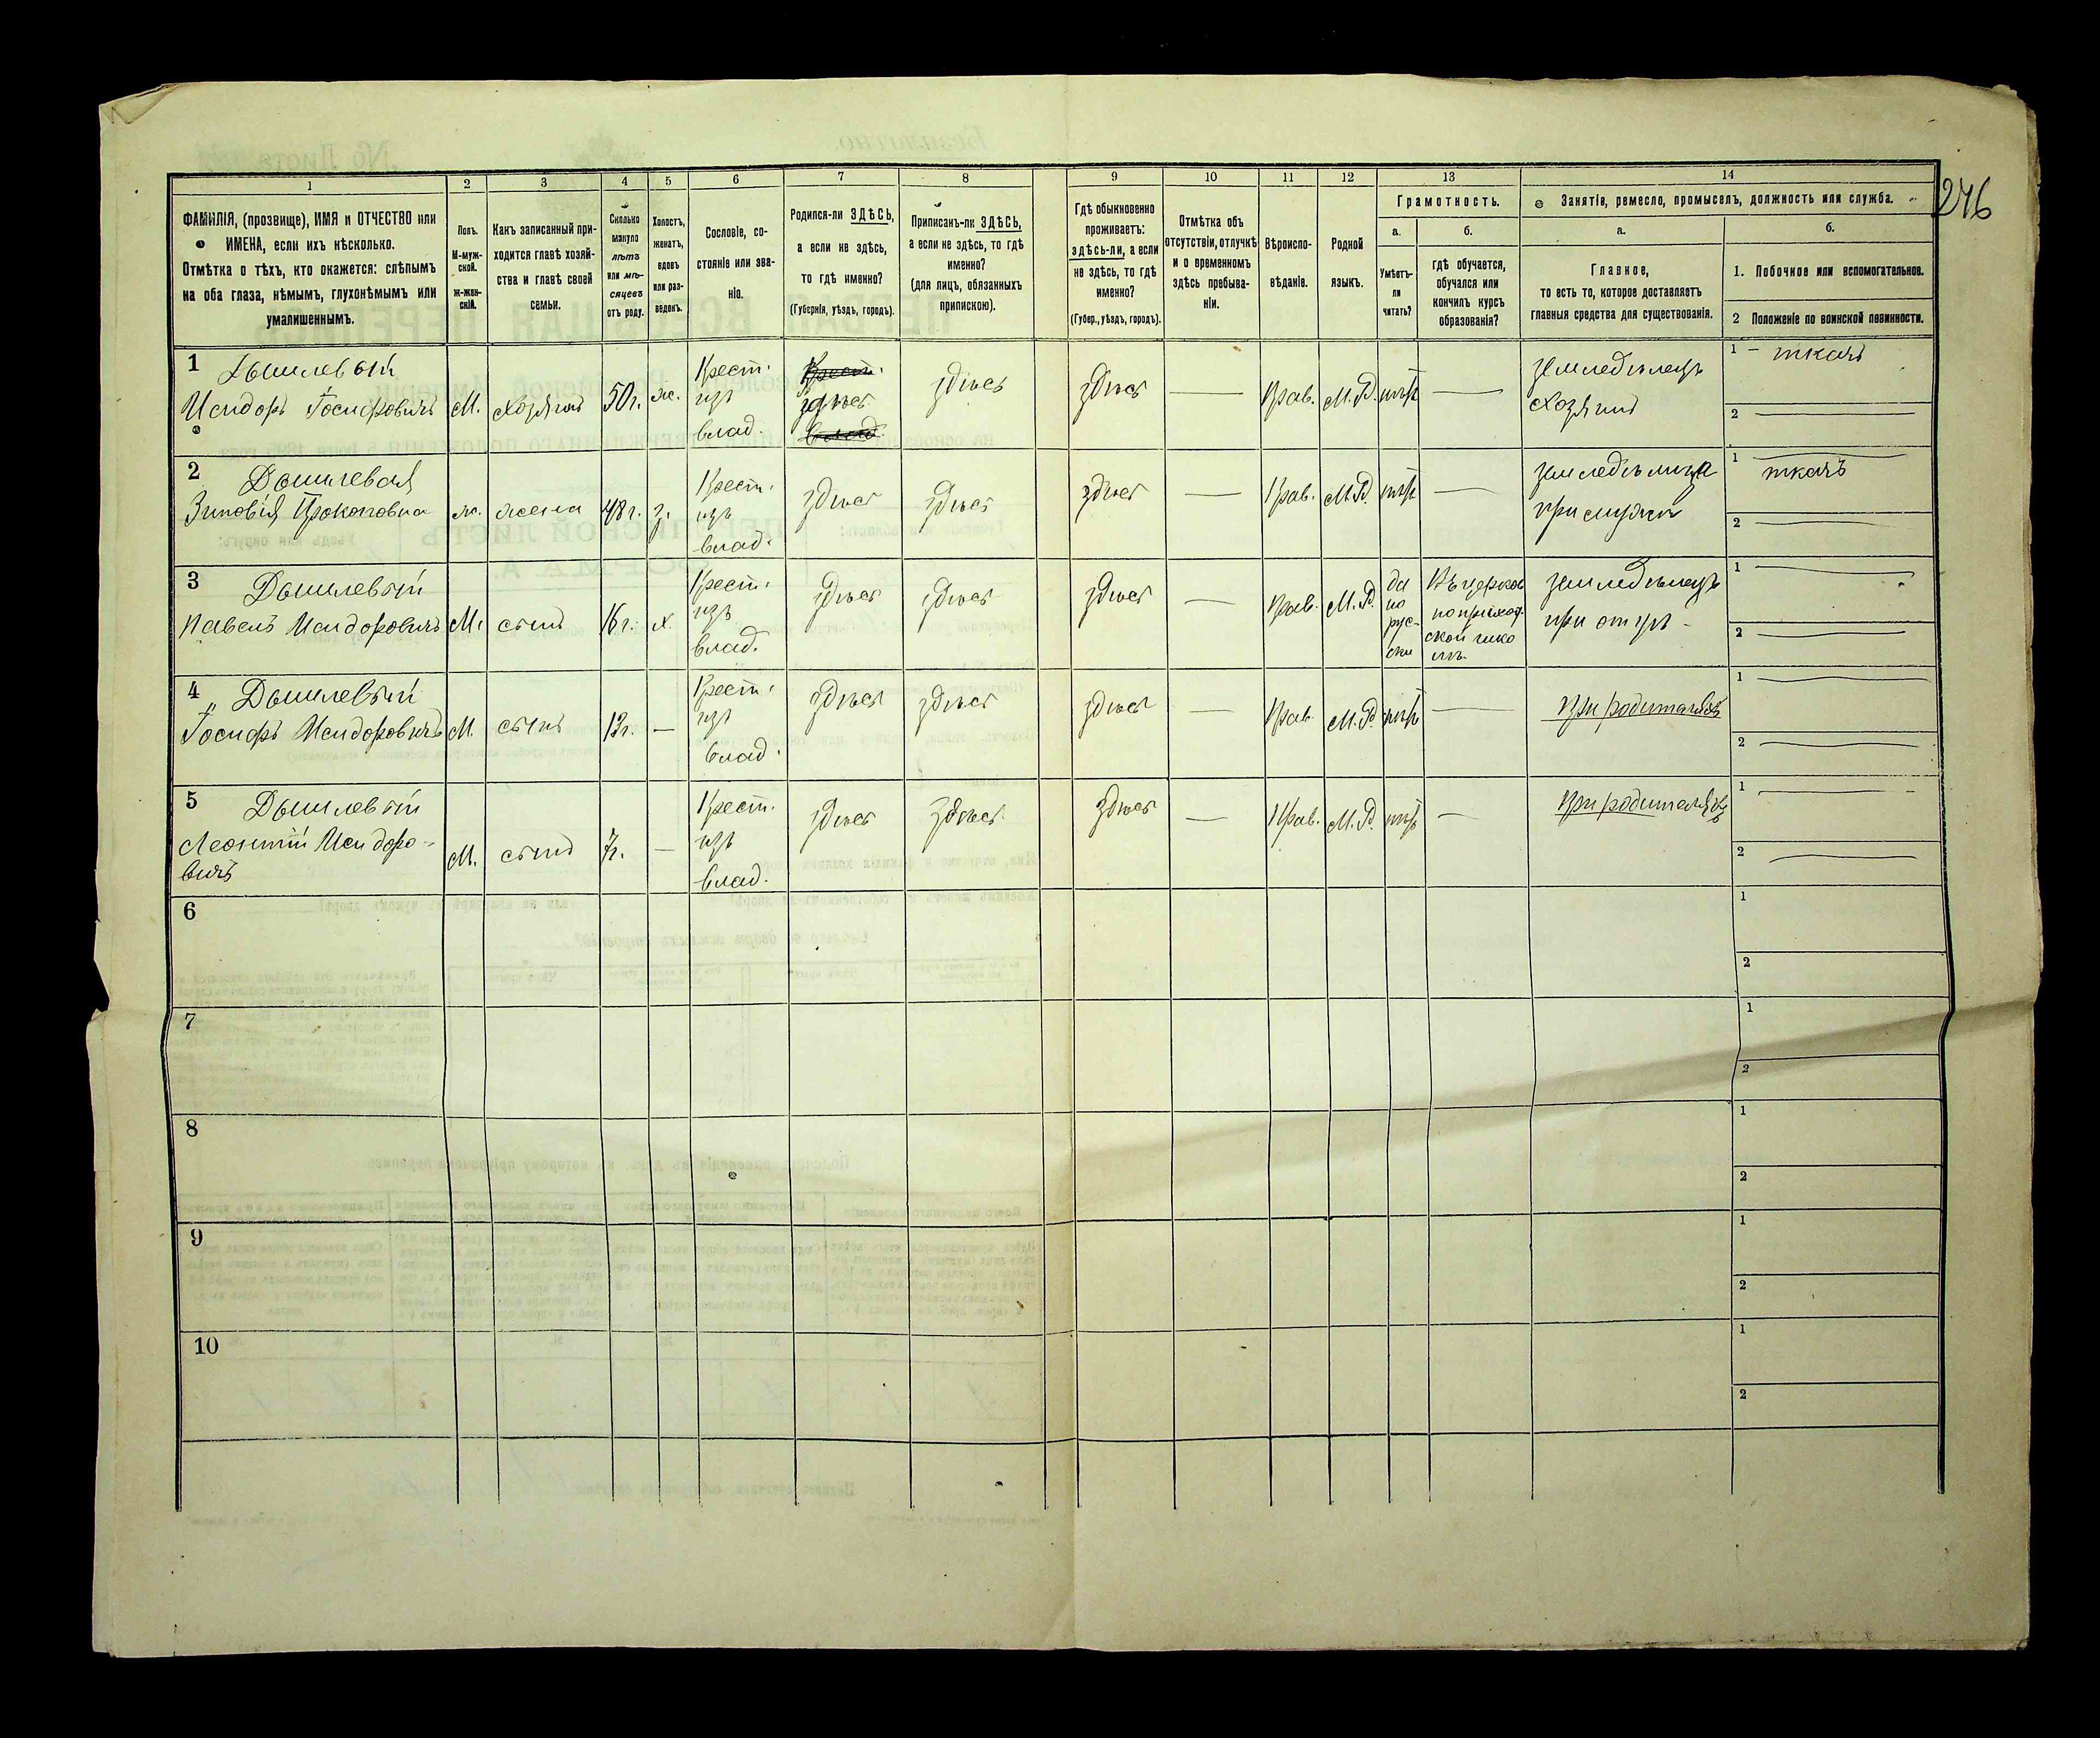 246
1 2 3 4 5 6 7 8 9 10 11 12 13 14
ФАМИЛІЯ, (прозвище), ИМЯ и ОТЧЕСТВО или
ИМЕНА, если ихъ нѣсколько.
Отмѣтка о тѣхъ, кто окажется: слѣпымъ
на оба глаза, нѣмымъ, глухонѣмымъ или
умалишеннымъ.
Полъ.
М-муж-
ской.
ж-жен-
скій.
Какъ записанный при-
ходится главѣ хозяй-
ства и главѣ своей
семьи.
Сколько
минуло
лѣтъ
или мѣ-
сяцевъ
отъ роду.
Холостъ,
женатъ,
вдовъ
или раз-
веденъ.
Сословіе, со-
стояніе или зва-
ніе.
Родился-ли ЗДѢСЬ,
а если не здѣсь,
то гдѣ именно?
(Губернія, уѣздъ, городъ).
Приписанъ-ли ЗДѢСЬ,
а если не здѣсь, то гдѣ
именно?
(для лицъ, обязанныхъ
припискою).
Гдѣ обыкновенно
проживаетъ:
здѣсь-ли, а если
не здѣсь, то гдѣ
именно?
(Губер., уѣздъ, городъ).
Отмѣтка объ
отсутствіи, отлучкѣ
и о временномъ
здѣсь пребыва-
ніи.
Вѣроиспо-
вѣданіе.
Родной
языкъ.
Грамотность.
а.
Умѣетъ-
ли
читать?
б.
гдѣ обучается,
обучался или
кончилъ курсъ
образованія?
Занятіе, ремесло, промыселъ, должность или служба.
а.
Главное,
то есть то, которое доставляетъ
главныя средства для существованія.
б.
1. Побочное или вспомогательное.
2 Положеніе по воинской повинности.
1 Дышлевый
Исидоръ Іосифовичъ
М.
хозяинъ
50 г.
ж.
Крест.
изъ
влад.
Крест.
здѣсь
влад.
здѣсь
здѣсь
—
Прав.
М.Р.
нѣтъ
—
земледѣлецъ
хозяинъ
1 — ткачъ
2 —
2 Дышлевая
Зиновія Прокоповна
ж.
жена
48 г.
з.
Крест.
изъ
влад.
здѣсь
здѣсь
здѣсь
—
Прав.
М.Р.
нѣтъ
—
земледѣлица
при мужѣ
1 ткачъ
2 —
3 Дышлевый
Павелъ Исидоровичъ
М.
сынъ
16 г.
х.
Крест.
изъ
влад.
здѣсь
здѣсь
здѣсь
—
Прав.
М.Р.
да
по
рус-
ски
Въ церков
но приход
ской шко
лѣ
земледѣлецъ
при отцѣ -
1 —
2 —
4 „ Дышлевый
Іосифъ Исидоровичъ
М.
сынъ
12 г.
—
Крест.
изъ
влад.
здѣсь
здѣсь
здѣсь
—
Прав.
М.Р.
нѣтъ
—
при родителяхъ
1 —
2 —
5 Дышлевый
Леонтій Исидоро-
вичъ
М.
сынъ
7 г.
—
Крест.
изъ
влад.
здѣсь
здѣсь
здѣсь
—
Прав.
М.Р.
нѣтъ
—
при родителяхъ
1 —
2 —
6
1
2
7
1
2
8
1
2
9
1
2
10
1
2